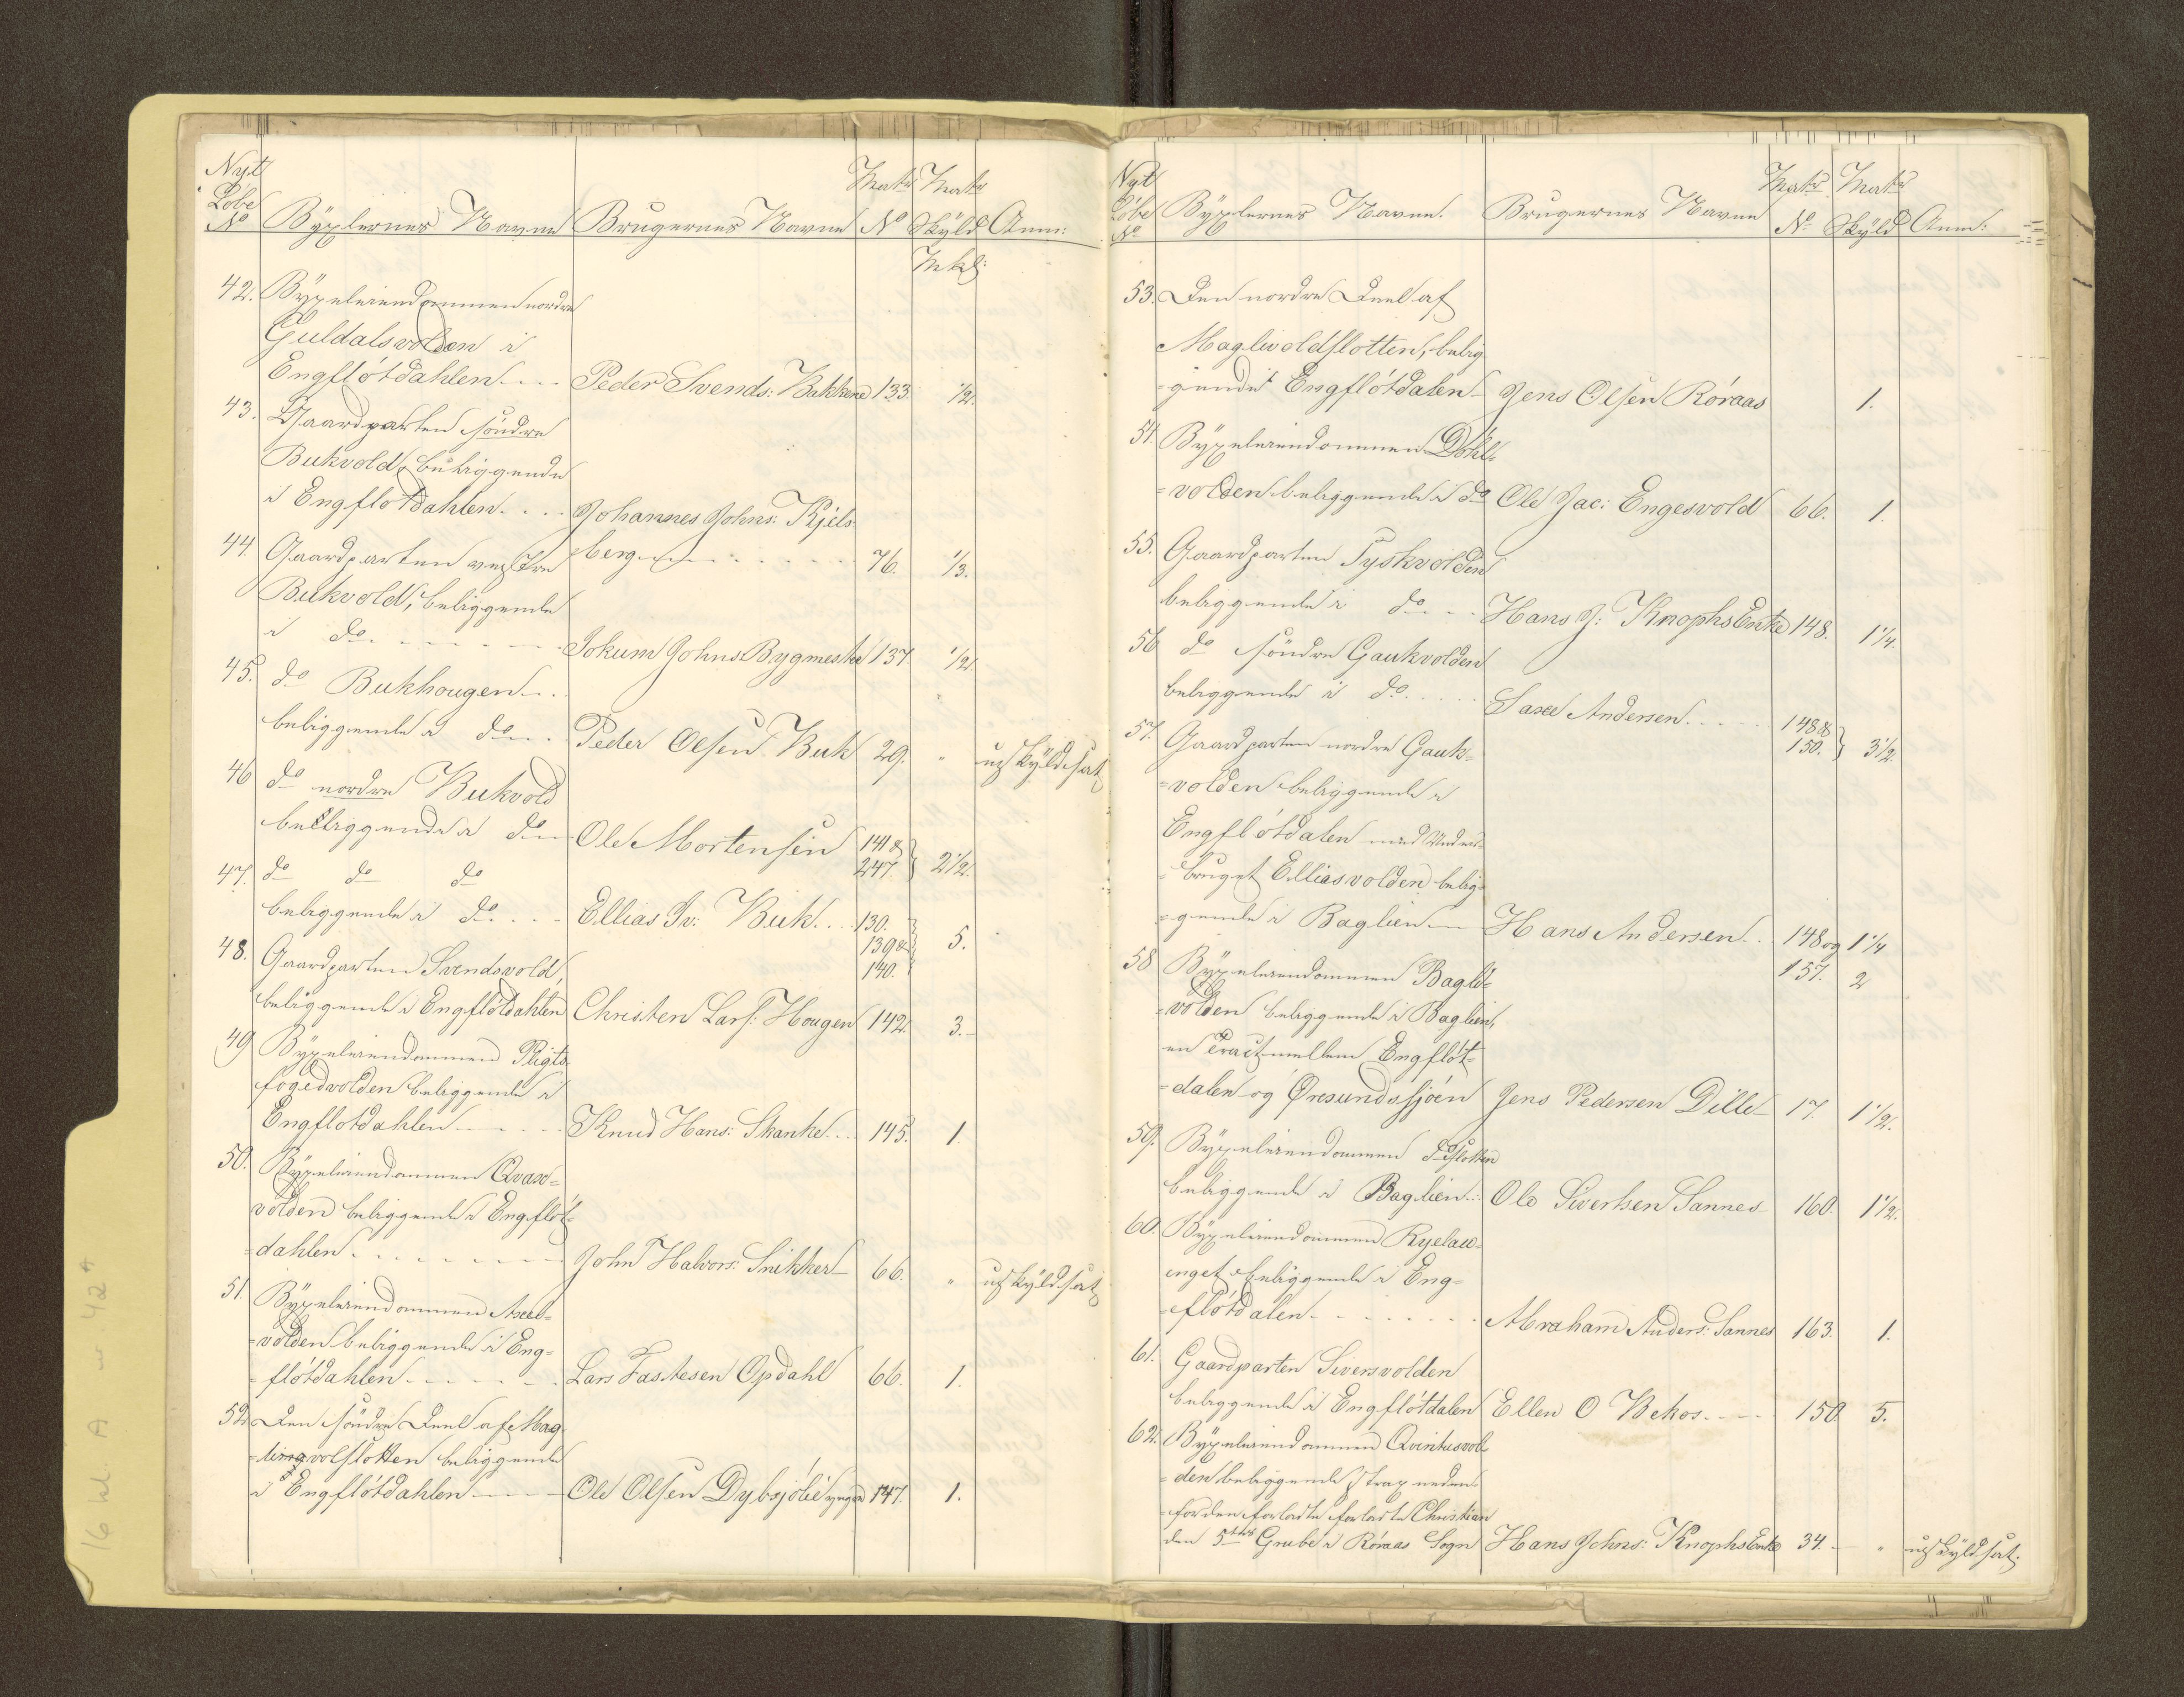 Nyt
Løbe
No
Byxlernes Navne
Brugernes Navne
Matr
No
Matr
Skyld
Anm:
Mkl:
42. Byxeleiendommen nordre
Guldalsvolden i
Engflótdahlen.... Peder Svends: Bakkene 133. 1/2.
43. Gaardparten søndre
Bukvold, beliggende
i Engflotdahlen.... Johannes Johns: Kjels-
44. Gaardparten vestre berg........ 76. 1/3.
Bukvold, beliggende
i do....... Jokum Johns Bygmester 137. 1/2.
45. do Bukhougen...
beliggende i do... Peder Olsen Buk 29. " uskyldsat
46 do nordre Bukvold
beliggende i do... Ole Mortensen 141 &
247. } 2 1/2.
47. do do do
beliggende i do.... Ellias Iv: Buk... 130.
139 &
140. } 5.
48. Gaardparten Svendsvold,
beliggende i Engflótdahlen Christen Lars: Hougen 142. 3.-
49 Byxeleiendommen Pligts-
fogedvolden beliggende i
Engflotdahlen...... Knud Hans: Skanke... 145. 1.
50. Byxeleiendommen Qvan-
volden beliggende i Engflót-
dahlen....... John Halvors: Snikker 66. " uskyldsat
51. Byxeleiendommen Axel-
-volden beliggende i Eng-
-flótdahlen...... Lars Fastesen Opdahl 66. 1.
52. Den søndre Deel af Mag-
volslotten beliggende
i Engflótdahlen.... Ole Olsen Dybsjölie yngre 147. 1.
Nyt
Løbe
No
Byxlernes Navne.
Brugernes Navne
Matr
No
Matr
Skyld
Anm:
53. Den nordre Deel af
Maglivoldslotten, belig-
-gende i Engflótdalen Jens Olsen Róraas 1.
54. Byxeleiendommen Döhl-
-volden beliggende i do Ole Jac: Engesvold 66. 1.
55. Gaardparten Tyskvolden
beliggende i do... Hans J: Knophs Enke 148. 1 1/4.
56 do søndre Gaukvolden
beliggende i do..... Saxe Andersen..... 148 &
150. } 3 1/2.
57. Gaardparten nordre Gauk-
-volden beliggende i
Engflótdalen med Under-
-bruget Elliasvolden belig-
-gende i Baglien... Hans Andersen... 148 og 1 1/4
157. 2
58 Byxeleiendommen Bagli-
-volden beliggende i Baglien,
en Tract mellem Engflót-
-dalen og Øresundssjóen Jens Pedersen Dille 17. 1 1/2.
59. Byxeleiendommen do slotten
beliggende i Baglien... Ole Sivertsen Sannes 160. 1 1/2.
60. Byxeleiendommen Ryelau-
enget beliggende i Eng-
-flótdalen........ Abraham Anders: Sannes 163. 1.
61. Gaardparten Siversvolden
beliggende i Engflótdalen Ellen O Bekos.... 150. 5.
62. Byxeleiendommen Qvintusvol-
-den beliggende strax neden-
for den forladte forladte Christian
den 5tes Grube i Róraas Sogn Hans Johns: Knophs Enke 34. " uskyldsat.
16 hl. A nr. 42 4